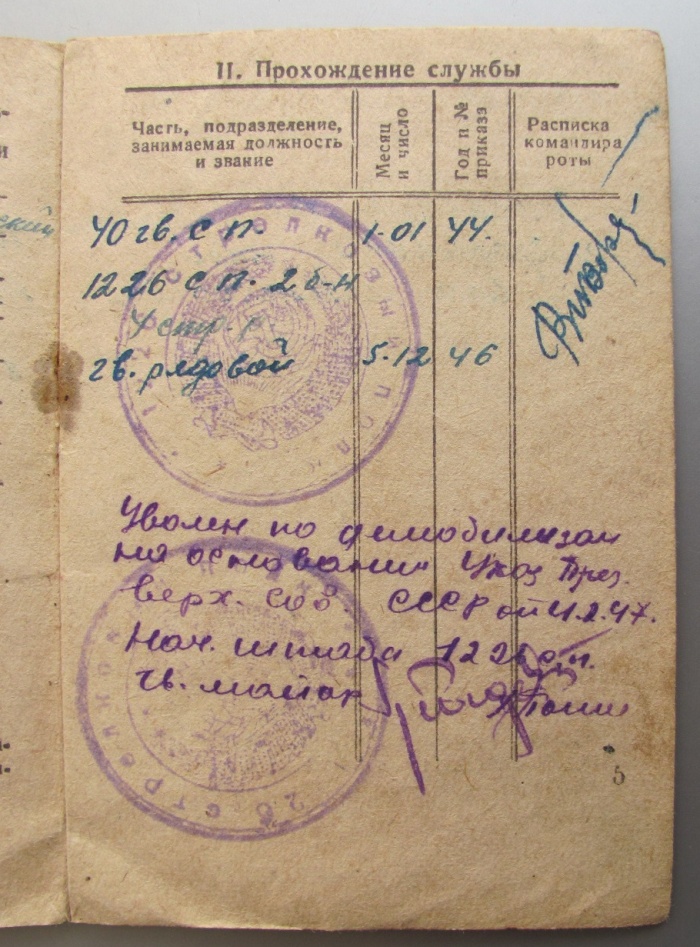 II. Прохождение службы
Часть, подразделение, занимаемая должность и звание
Месяц и число
Год и № приказа
Расписка командира роты
ский
40 гв. с п. 1.01 44.
1226 с п. 2 б-н
4 стр. р
гв. рядовой 5.12 46
Уволен по демобилизац
на основании Указ през.
верх. сов. СССР от 4.2.47.
Нач. штаба 1226 с.п.
гв. майор
5
1226 СТРЕЛКОВЫЙ ПОЛК